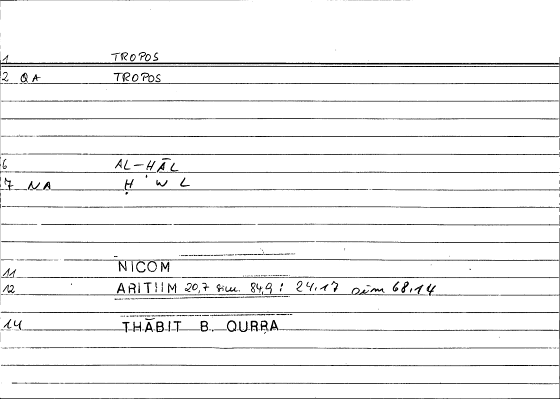 1 TROPOS
2 QA TROPOS
6 AL-HĀL
7 NA Ḥ W L
11 NICOM
12 ARITHM 20,7 84,9 : 24,17 68,14
14 THĀBIT B. QURRA